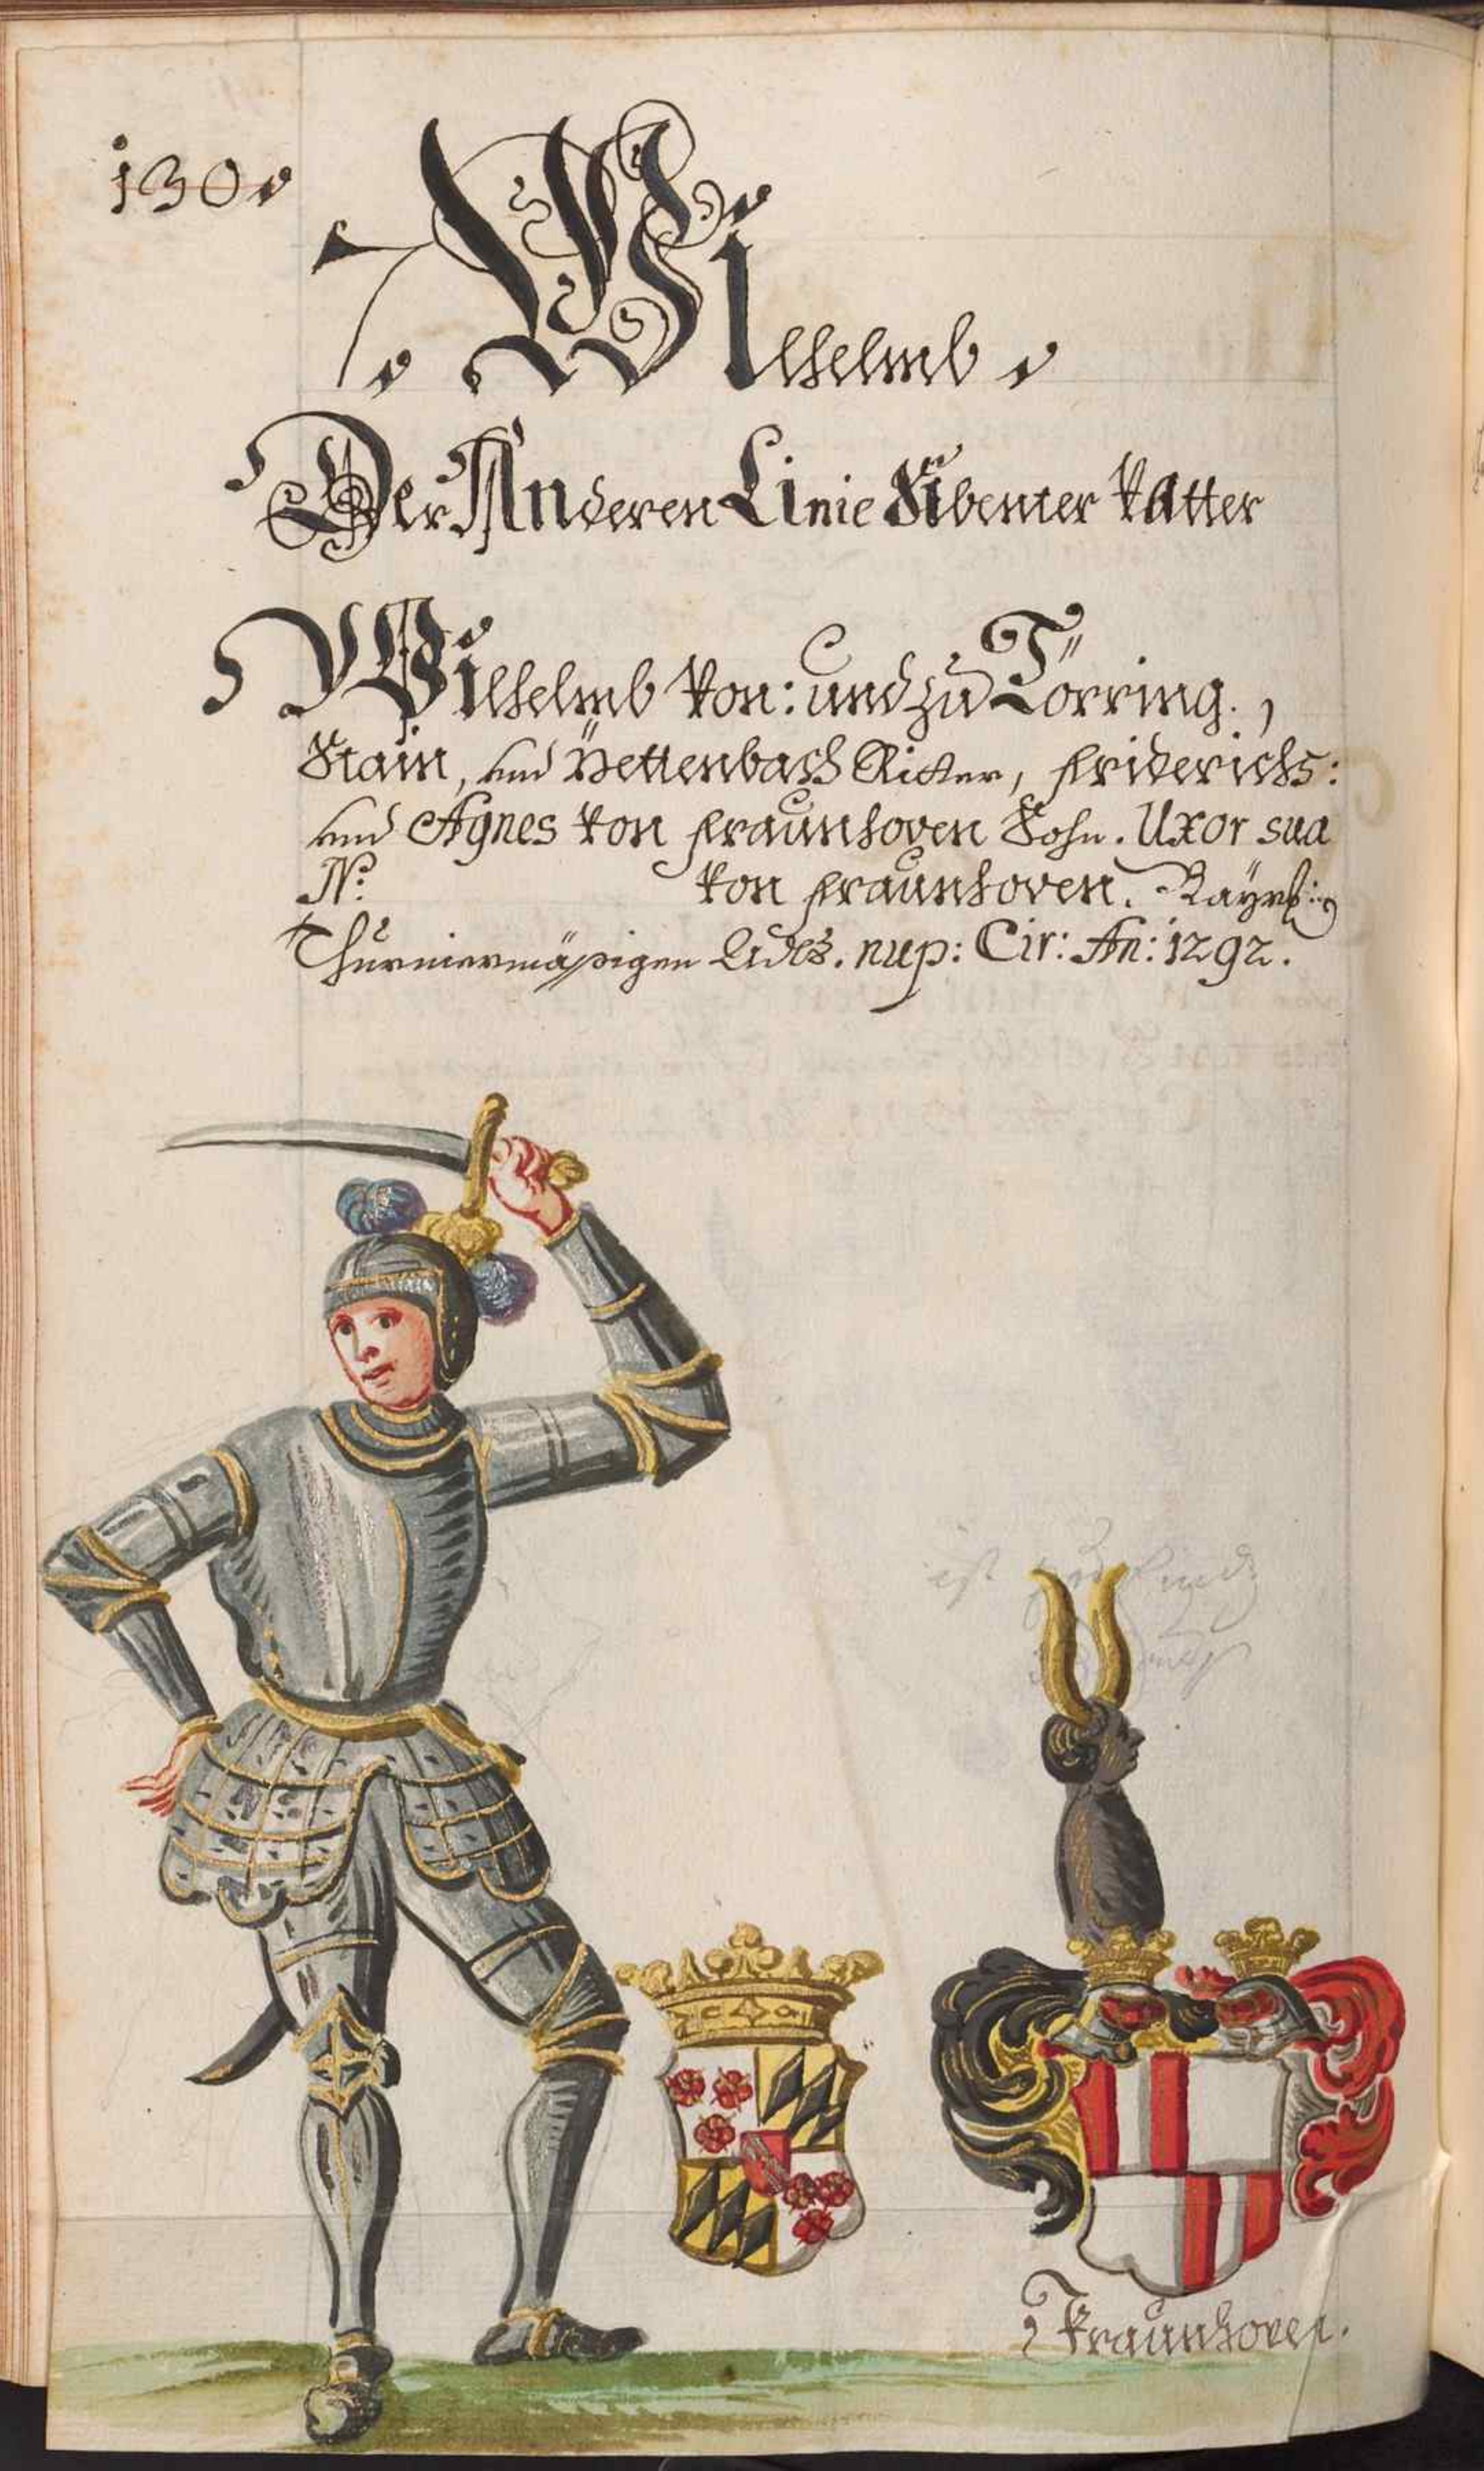 130
Wilhelmb
Der Anderen Linie Sibenter Vatter
Wilhelmb Von: und zu Törring.,
Stain, und Pettenbach Ritter, Friderichs:
und Agnes Von Fraunhoven Sohn. Uxor sua
N: Von Fraunhoven. Bayrl:
Thurniermäßigen Adls. nup: Cir: An: 1292.
ist
Fraunhoven.